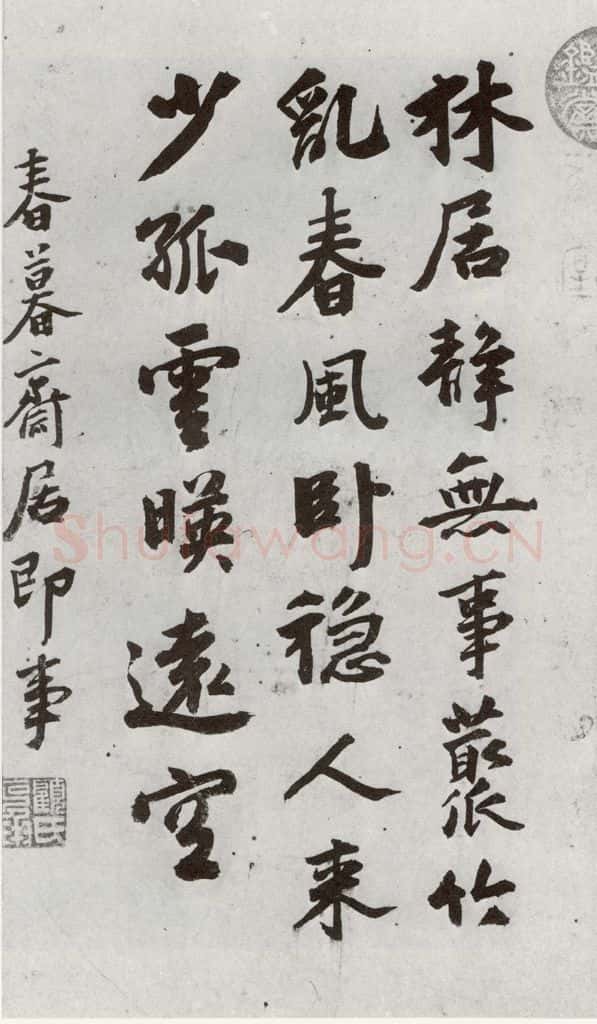 林居靜無事藂竹
亂春風卧穏人来
少孤雲暎遠空
春暮齋居即事
Shufawang.CN